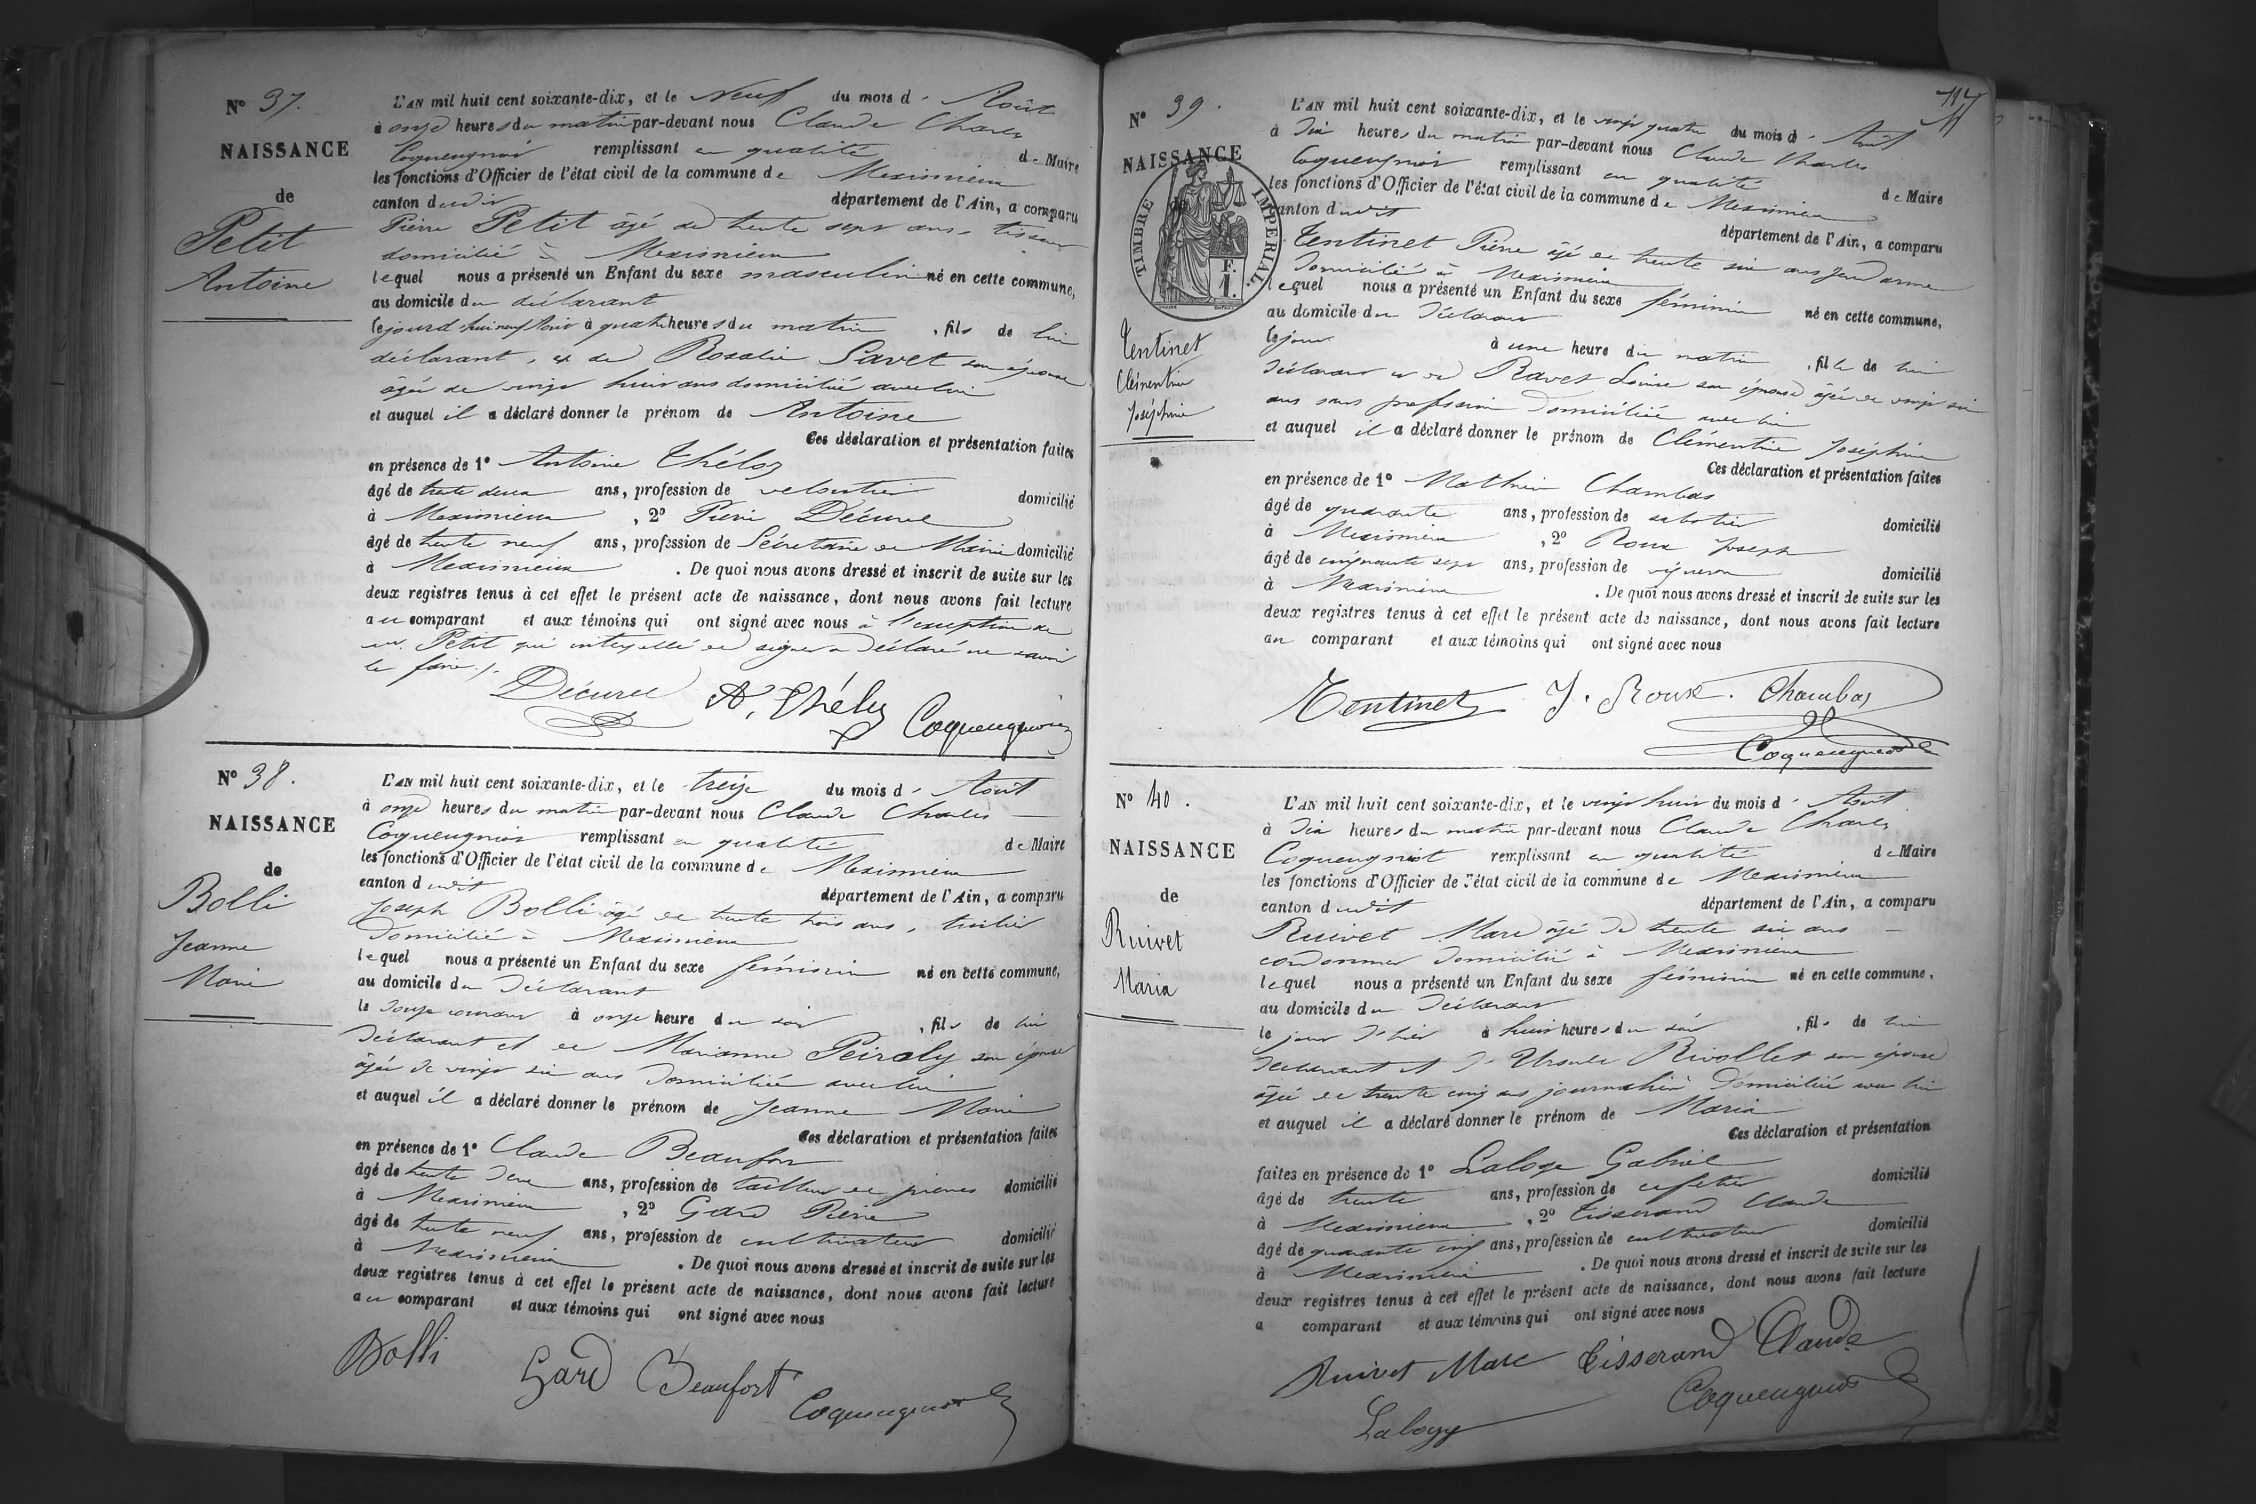 N° 37.
NAISSANCE
de
Petit
Antoine
L'AN mil huit cent soixante-dix, et le Neuf du mois d' Août
à onze heures du matin par-devant nous Claude Charles
Coqueugniot remplissant en qualité de Maire
les fonctions d'Officier de l'état civil de la commune de Meximieux
canton dudit département de l'Ain, a comparu
Pierre Petit âgé de trente sept ans, tisseur
domicilié à Meximieux
lequel nous a présenté un Enfant du sexe masculin né en cette commune,
au domicile du déclarant
lejourd'hui neuf à quatre heures du matin, fils de lui
déclarant, et de Rosalie Savet son épouse
âgée de vingt huit ans domiciliée avec lui
et auquel il a déclaré donner le prénom de Antoine
Ces déclaration et présentation faites
en présence de 1° Antoine Théloz
âgé de trente deux ans, profession de veloutier domicilié
à Meximieux, 2° Pierre Décurel
âgé de trente neuf ans, profession de Sécretaire de Mairie domicilié
à Meximieux. De quoi nous avons dressé et inscrit de suite sur les
deux registres tenus à cet effet le présent acte de naissance, dont nous avons fait lecture
au comparant et aux témoins qui ont signé avec nous à l'exception de
Petit qui interpellé de signer a déclaré ne savoir
le faire./.
Décurel A, Théloz Coqueugniot
N° 38.
NAISSANCE
de
Bolli
Jeanne
Marie
L'AN mil huit cent soixante-dix, et le treize du mois d' Août
à onze heures du matin par-devant nous Claude Charles
Coqueugniot remplissant en qualité de Maire
les fonctions d'Officier de l'état civil de la commune de Meximieux
canton dudit département de l'Ain, a comparu
Joseph Bolli âgé de trente trois ans, tuilier
domicilié à Meximieux
lequel nous a présenté un Enfant du sexe féminin né en cette commune,
au domicile du déclarant
le douze courant à onze heure du soir, fils de lui
déclarant et de Marianne Peiraly son épouse
âgée de vingt six ans domiciliée avec lui
et auquel il a déclaré donner le prénom de Jeanne Marie
Ces déclaration et présentation faites
en présence de 1° Claude Beaufort
âgé de trente deux ans, profession de tailleur de pierres domicilié
à Meximieux, 2° Gard Pierre
âgé de trente neuf ans, profession de cultivateur domicilié
à Meximieux. De quoi nous avons dressé et inscrit de suite sur les
deux registres tenus à cet effet le présent acte de naissance, dont nous avons fait lecture
au comparant et aux témoins qui ont signé avec nous
Bolli Gard Beaufort Coqueugniot
N° 39.
NAISSANCE
de
TIMBRE IMPERIAL
F.
1.
Tentinet
Clémentine
Joséphine
L'AN mil huit cent soixante-dix, et le vingt quatre du mois d' Août
à dix heures du matin par-devant nous Claude Charles
Coqueugniot remplissant en qualité de Maire
les fonctions d'Officier de l'état civil de la commune de Meximieux
canton dudit département de l'Ain, a comparu
Tentinet Pierre âgé de trente six ans gendarme
domicilié à Meximieux
lequel nous a présenté un Enfant du sexe féminin né en cette commune,
au domicile du déclarant
le jour à une heure du matin, fille de lui
déclarant et de Ravet Louise son épouse âgée de vingt six
ans sans profession domiciliée avec lui
et auquel il a déclaré donner le prénom de Clémentine Joséphine
Ces déclaration et présentation faites
en présence de 1° Mathieu Chambas
âgé de quarante ans, profession de sabotier domicilié
à Meximieux, 2° Roux Joseph
âgé de cinquante sept ans, profession de vigneron domicilié
à Meximieux. De quoi nous avons dressé et inscrit de suite sur les
deux registres tenus à cet effet le présent acte de naissance, dont nous avons fait lecture
au comparant et aux témoins qui ont signé avec nous
Tentinet J. Roux. Chambas
Coqueugniot
N° 40.
NAISSANCE
de
Ruivet
Maria
L'AN mil huit cent soixante-dix, et le vingt huit du mois d' Août
à dix heures du matin par-devant nous Claude Charles
Coqueugniot remplissant en qualité de Maire
les fonctions d'Officier de l'état civil de la commune de Meximieux
canton dudit département de l'Ain, a comparu
Ruivet Marc âgé de trente six ans
cordonnier domicilié à Meximieux
lequel nous a présenté un Enfant du sexe féminin né en cette commune,
au domicile du déclarant
le jour d'hier à huit heures du soir, fils de lui
déclarant et d' Ursule Rivollet son épouse
âgée de trente cinq ans journalière domiciliée avec lui
et auquel il a déclaré donner le prénom de Maria
Ces déclaration et présentation
faites en présence de 1° Laloge Gabriel
âgé de trente ans, profession de cafetier domicilié
à Meximieux, 2° Tisserand Claude
âgé de quarante cinq ans, profession de cultivateur domicilié
à Meximieux. De quoi nous avons dressé et inscrit de suite sur les
deux registres tenus à cet effet le présent acte de naissance, dont nous avons fait lecture
a comparant et aux témoins qui ont signé avec nous
Ruivet Marc Tisserand Claude
Laloge Coqueugniot